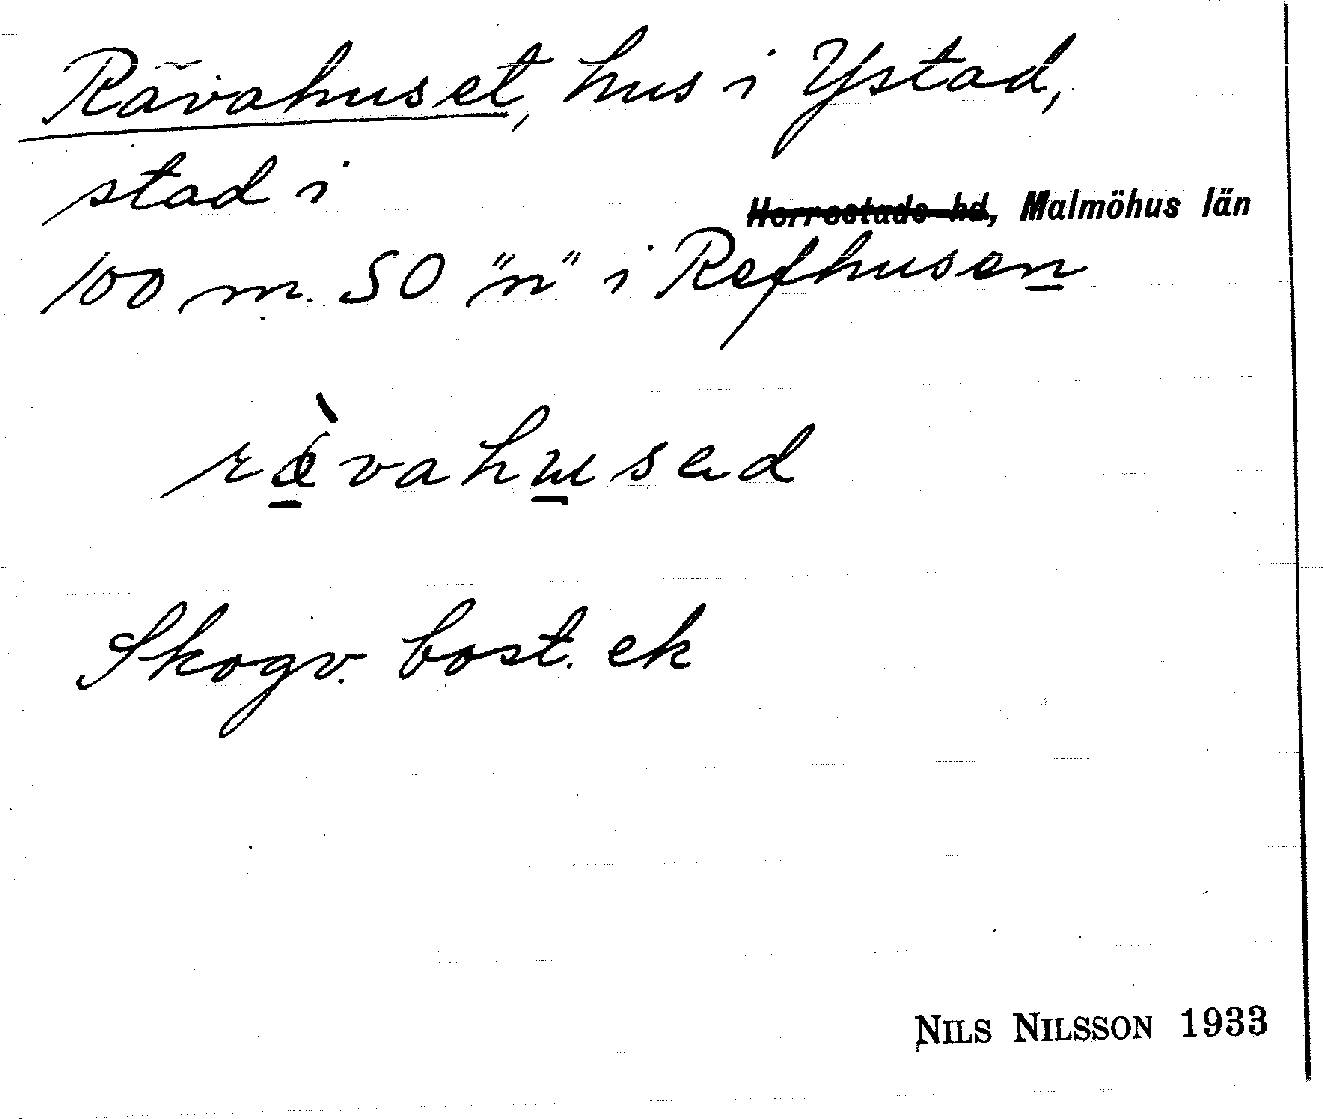 Rävahuset, hus i Ystad,
stad i
Herrestads hd, Malmöhus län
100 m. SO "n" i Refhusen
rävahused
Skogv. bost. ek
NILS NILSSON 1933